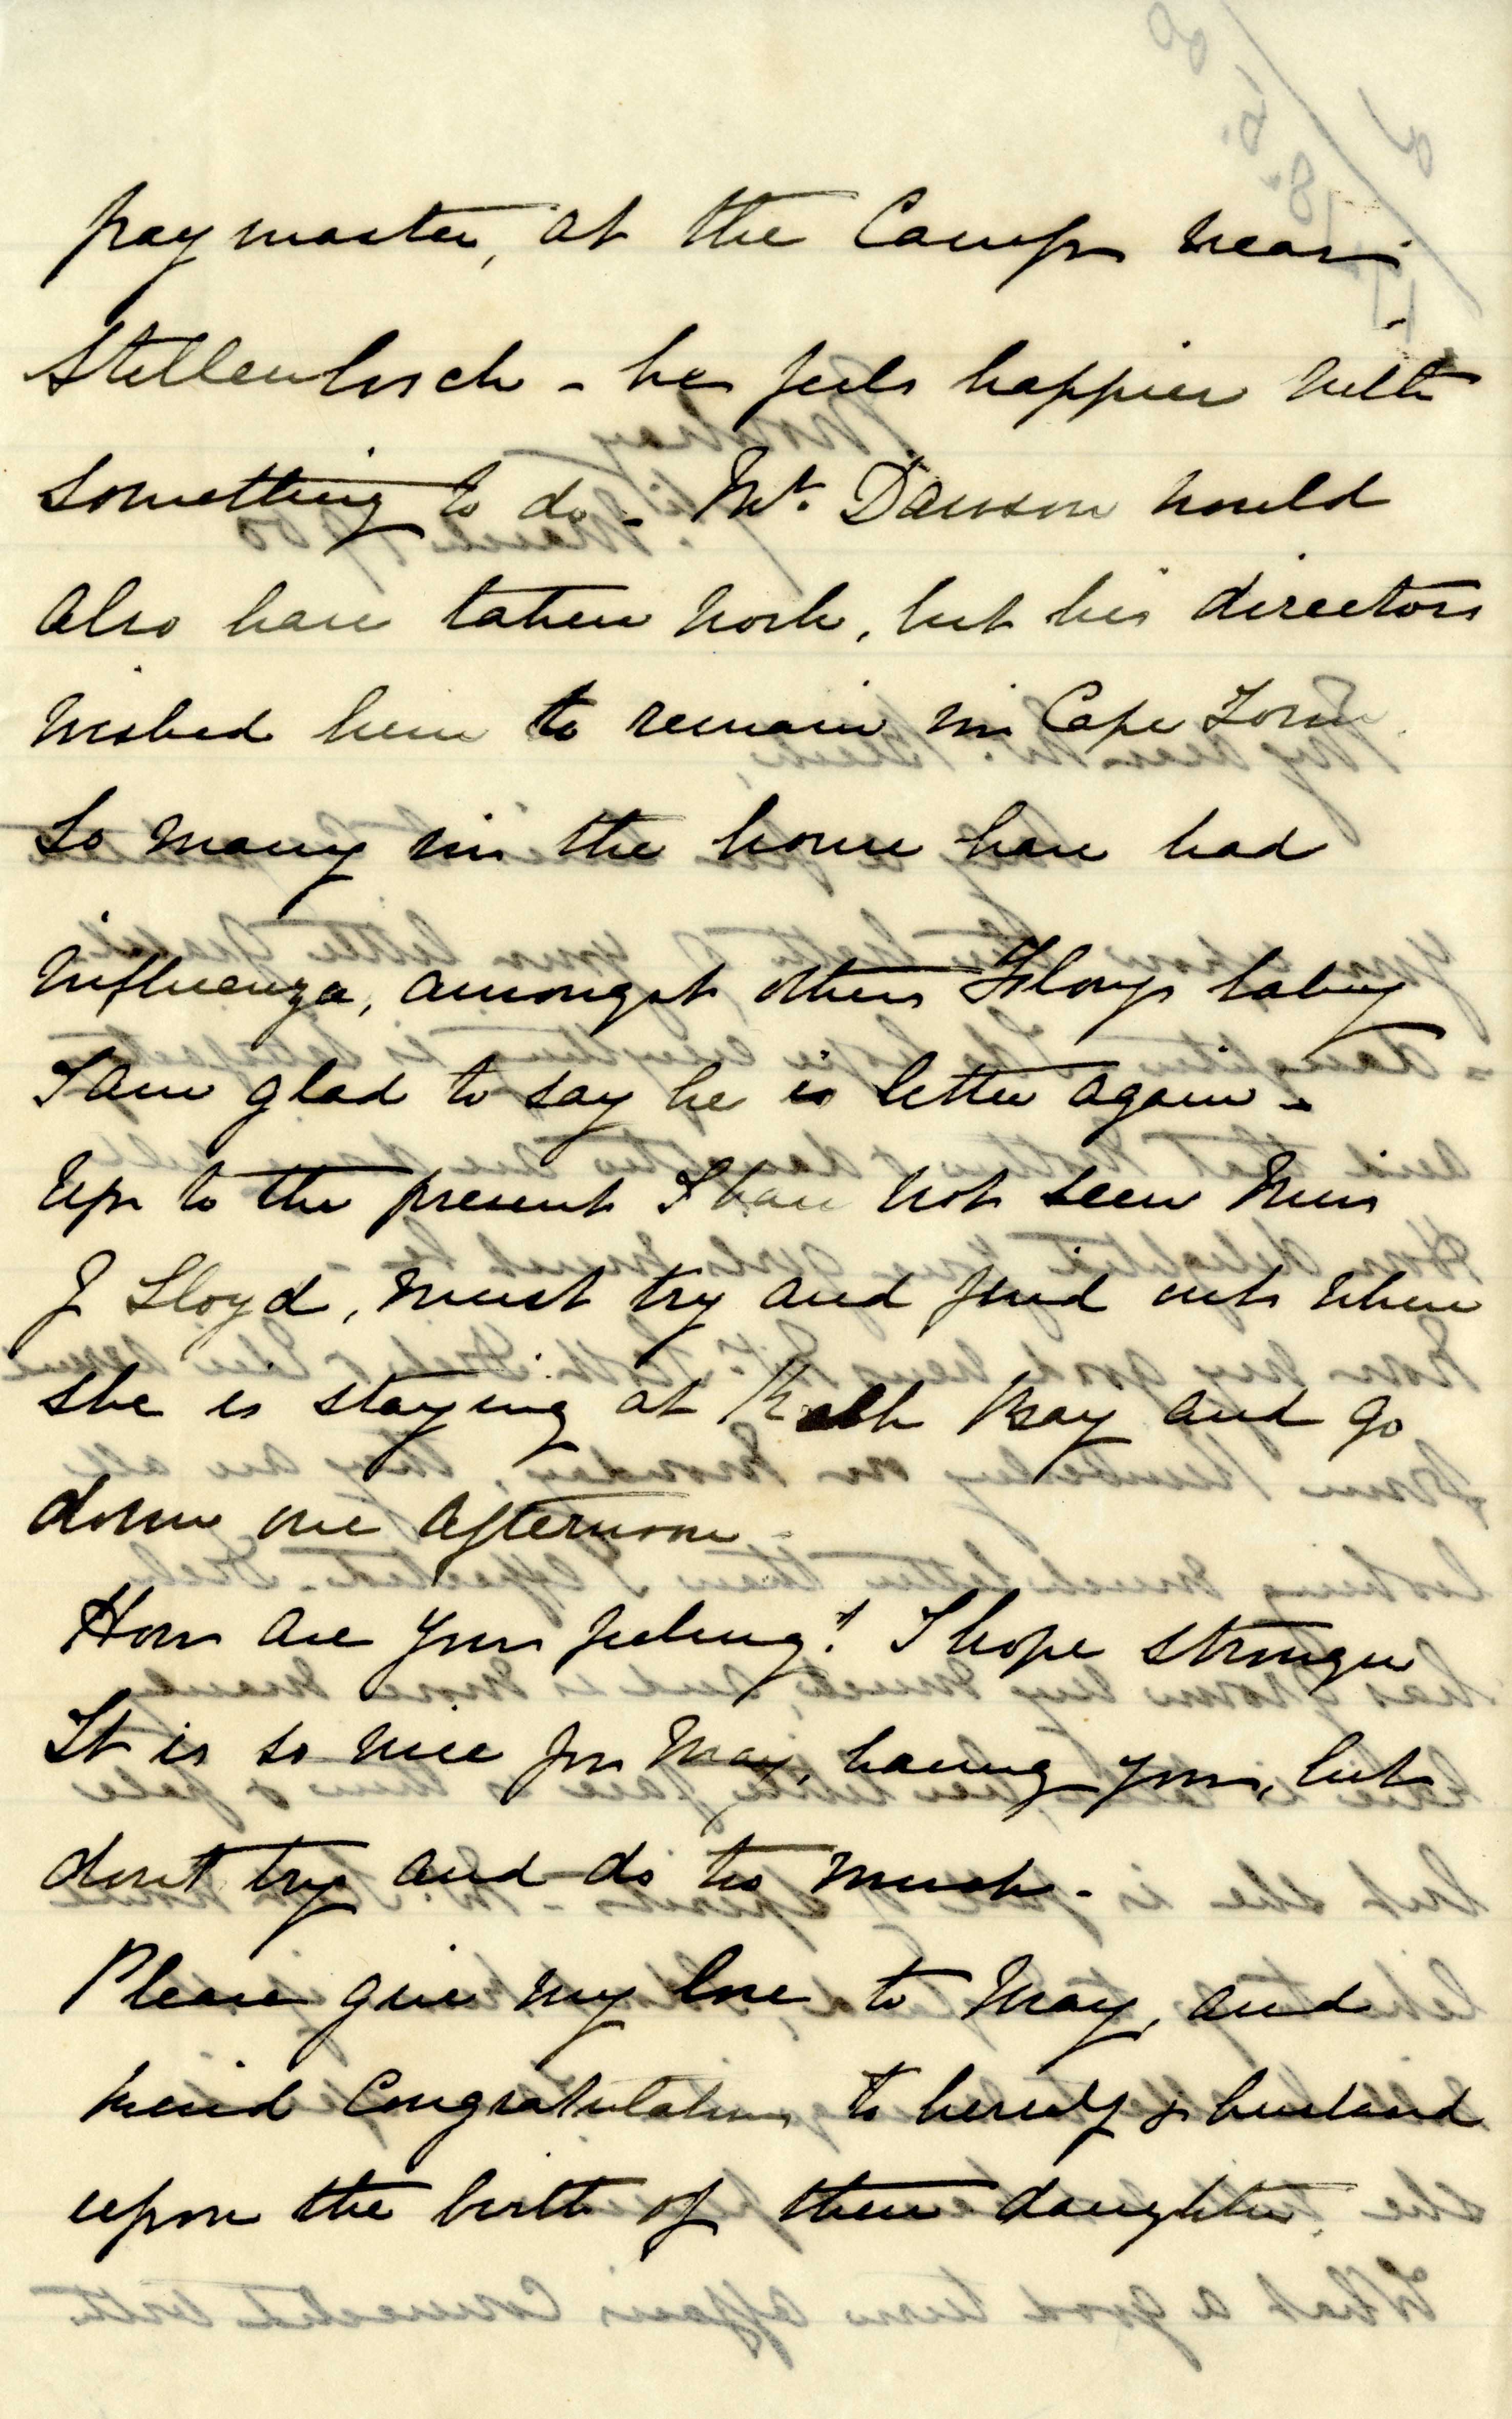 paymaster, at the Camp near
Stellenbosch - he feels happier with
something to do - Mr. Dawson would
also have taken work, but his directors
wished him to remain in Cape Town.
So many in the house have had
influenza, amongst others Flory's baby
I am glad to say he is better again -
Up to the present I have not seen Miss
J Lloyd, must try and find out where
she is staying at Kalk Bay and go
down one afternoon -
How are you feeling? I hope stronger
It is so nice for May, having you, but
don't try and do too much -
Please give my love to May, and
kind Congratulations to herself & husband
upon the birth of their daughter.